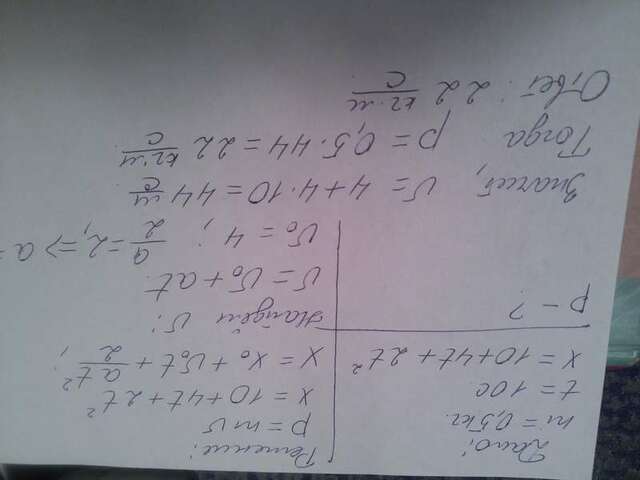 Дано:
m = 0,5 кг
t = 10 с
x = 10 + 4t + 2t²
p - ?
Решение:
p = mv
x = 10 + 4t + 2t²
x = x₀ + v₀t + at²/2 ;
Найдём v:
v = v₀ + at
v₀ = 4 ; a/2 = 2, => a =
Значит, v = 4 + 4·10 = 44 м/с
Тогда p = 0,5·44 = 22 кг·м/с
Ответ: 22 кг·м/с